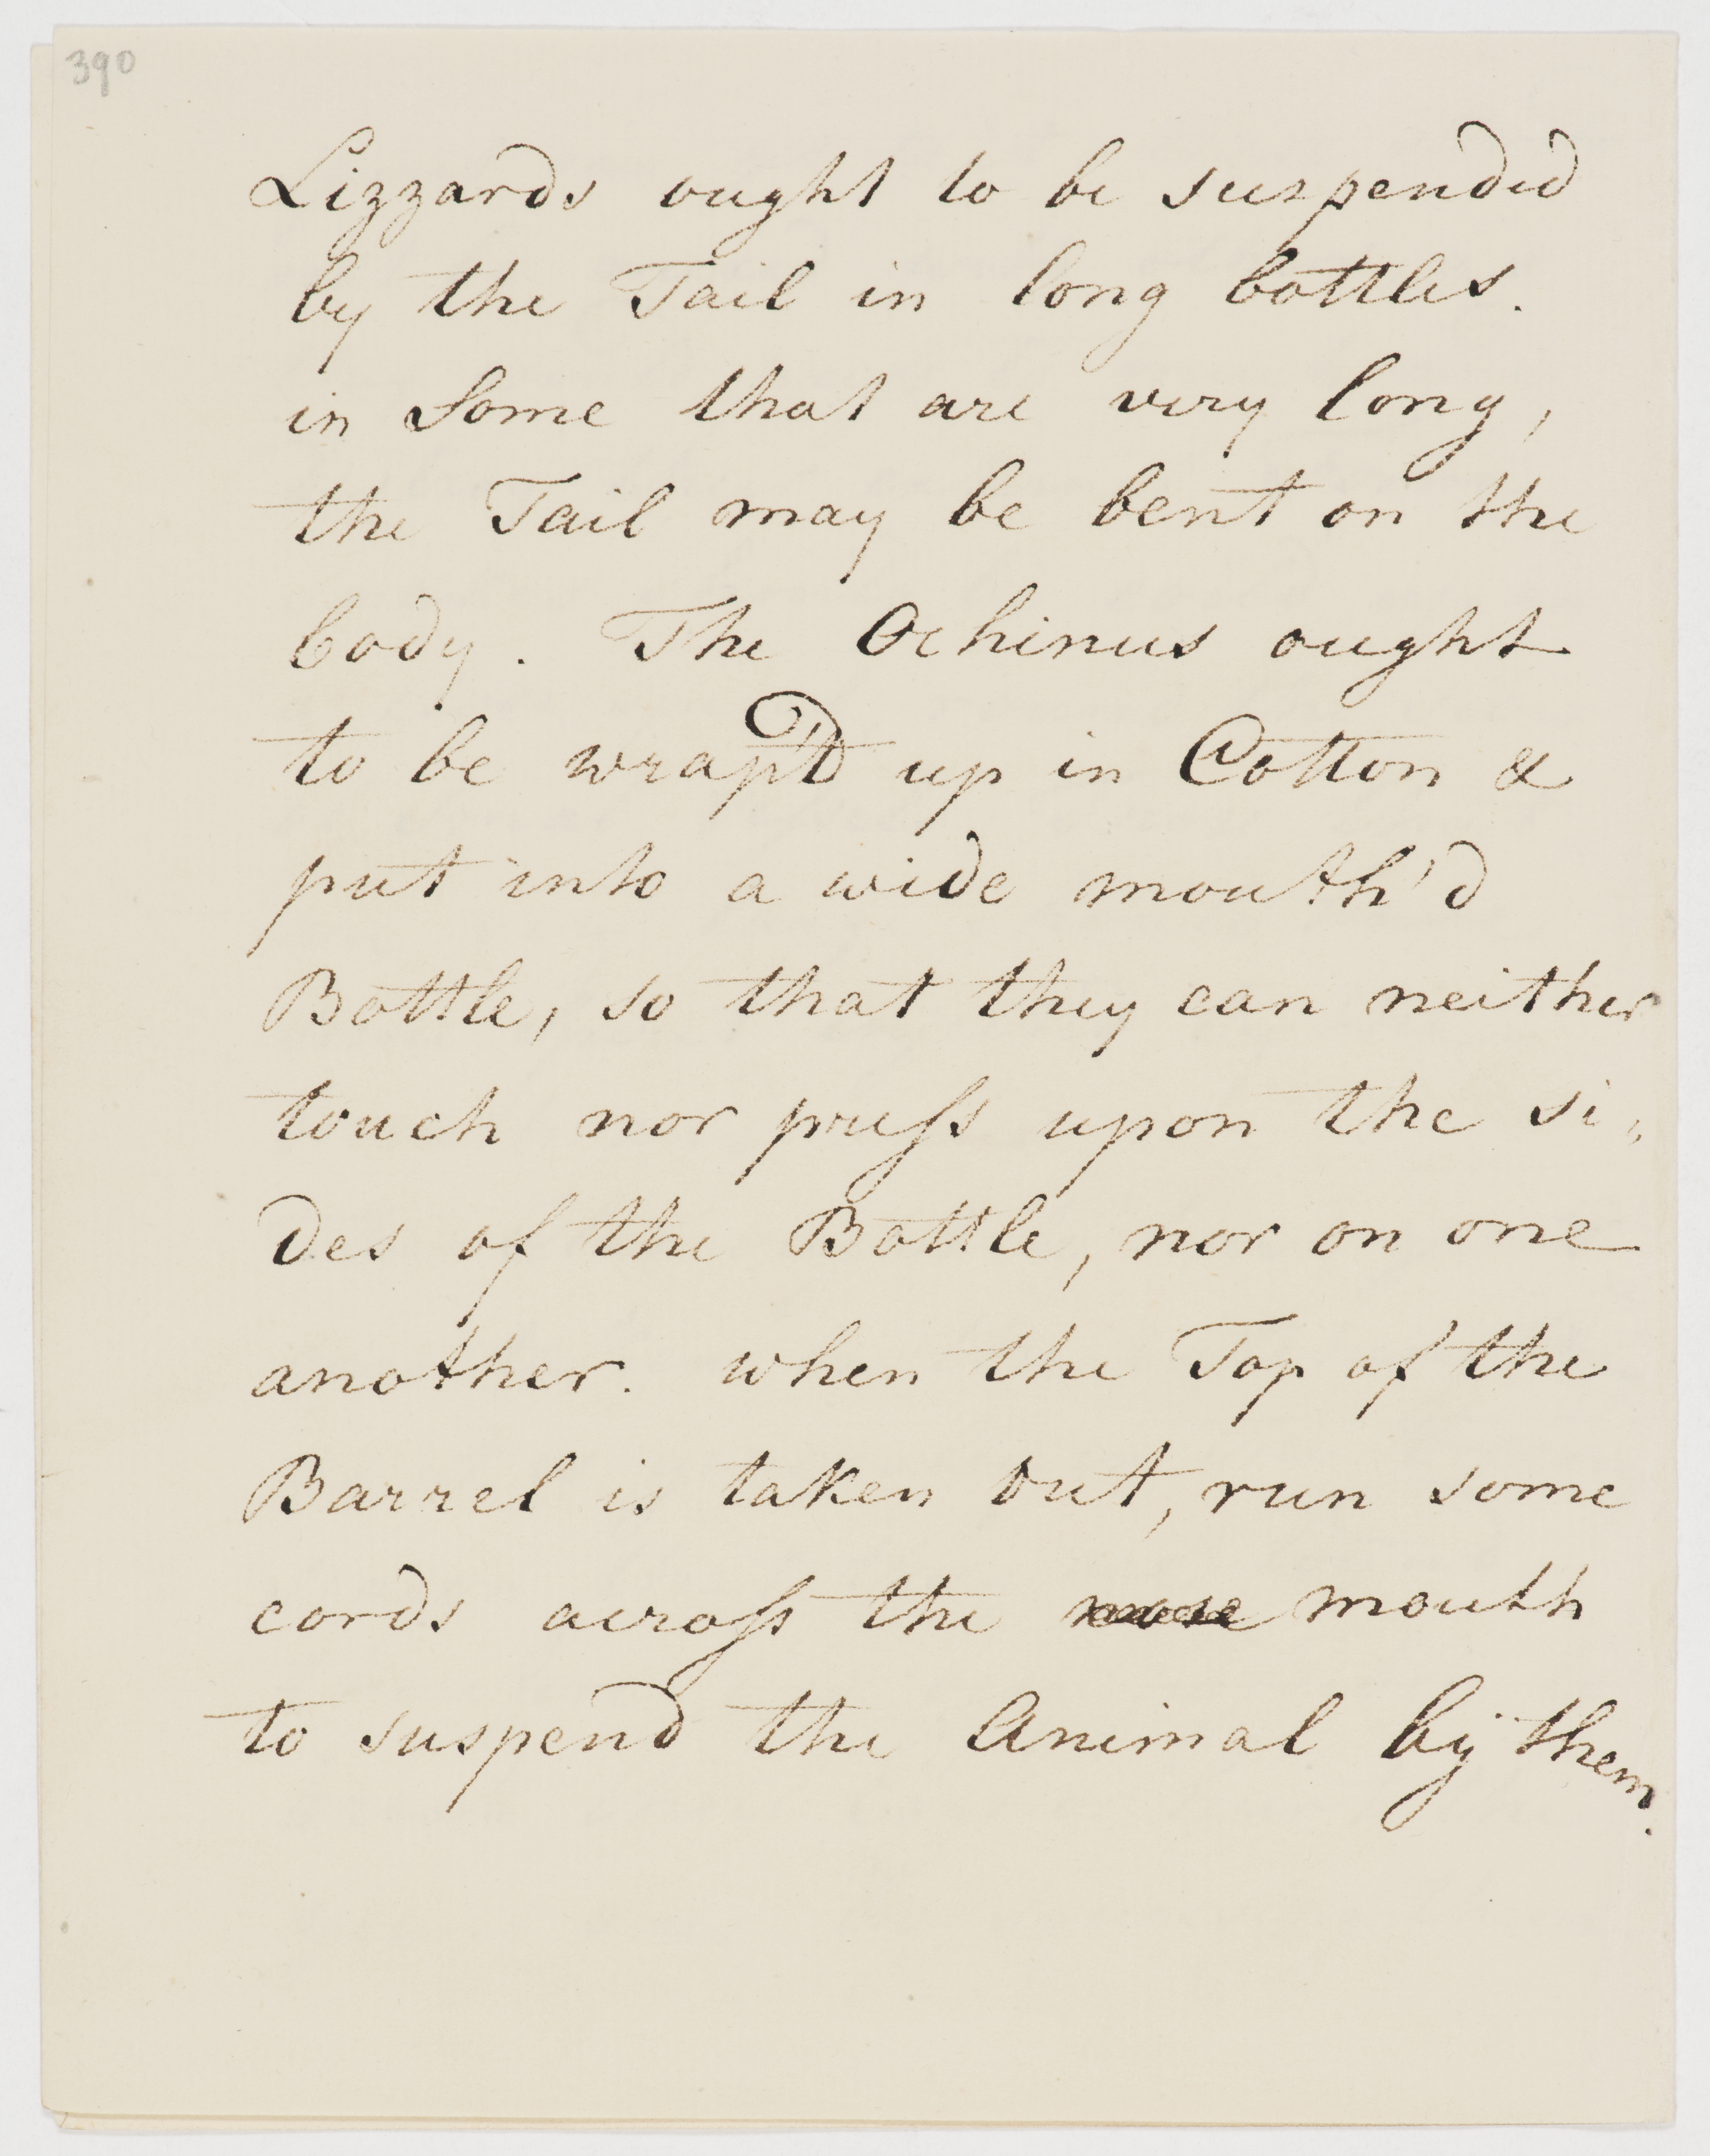 390
Lizzards ought to be suspended
by the Tail in long bottles.
in Some that are very long,
the Tail may be bent on the
body. The Ochinus ought
to be wrap'd up in Cotton &
put into a wide mouth'd
Bottle, so that they can neither
touch nor press upon the si,,
des of the Bottle, nor on one
another. when the Top of the
Barrel is taken out, run some
cords across the mouth
to suspend the Animal by them.